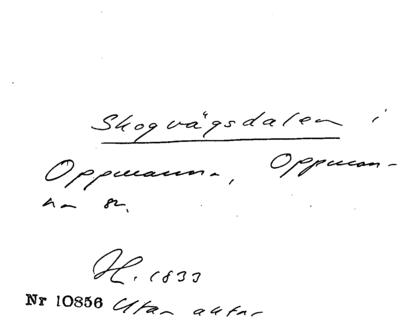 Skogvägsdalen i
Oppmanna, Oppman-
na sn.
H. 1833
Nr 10856 Utan auktor